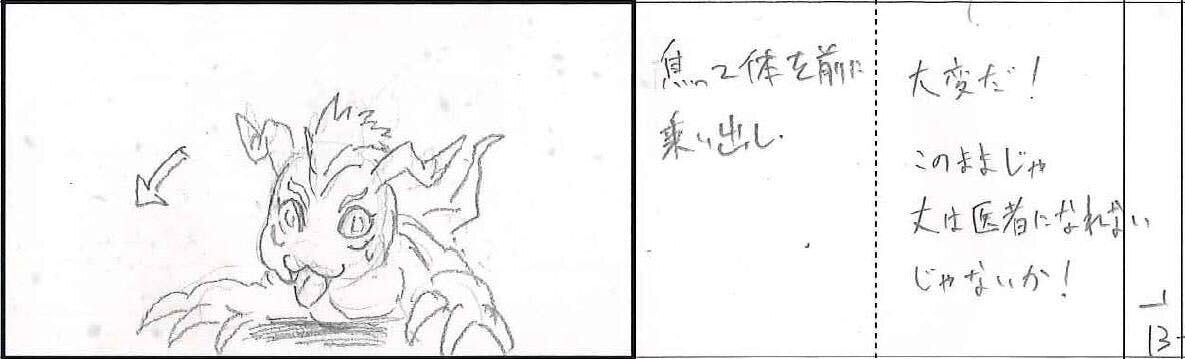 焦って体を前に
乗り出し
大変だ!
このままじゃ
丈は医者になれない
じゃないか!
13